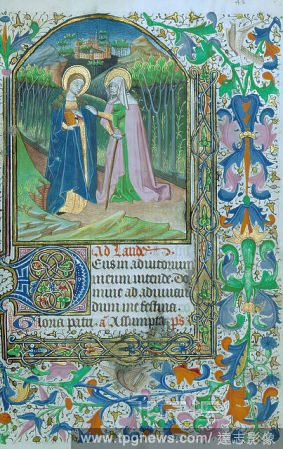 Ad Laudes
Deus in adiutorium
meum intende Do
mine ad adiuuan
dum me festina
Gloria patri a Assumpta ps
www.tpgnews.com/達志影像